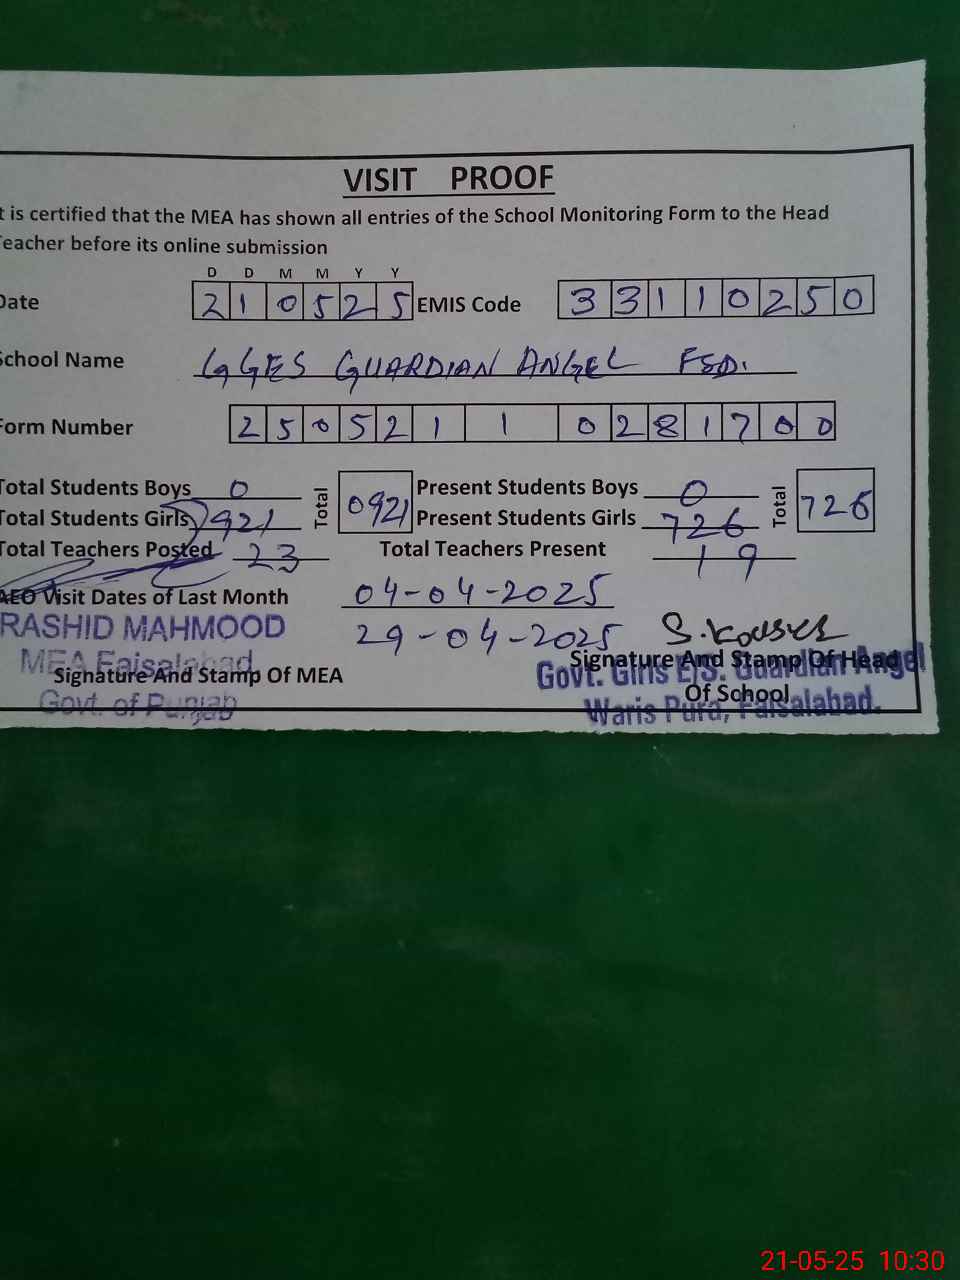 VISIT PROOF
t is certified that the MEA has shown all entries of the School Monitoring Form to the Head
Teacher before its online submission
D D M M Y Y
Date 2 1 0 5 2 5 EMIS Code 3 3 1 1 0 2 5 0
School Name GGES GUARDIAN ANGEL FSD.
Form Number 2 5 0 5 2 1 1 0 2 8 1 7 0 0
Total Students Boys 0 Total 0921 Present Students Boys 0 Total 726
Total Students Girls 921 Present Students Girls 726
Total Teachers Posted 23 Total Teachers Present 19
AEO Visit Dates of Last Month 04-04-2025
RASHID MAHMOOD 29-04-2025 S.Kouser
MEA Faisalabad
Signature And Stamp Of MEA Signature And Stamp Of Head
Govt. Girls E/S. Guardian Angel
Of School
Govt. of Punjab Waris Pura, Faisalabad.
21-05-25 10:30